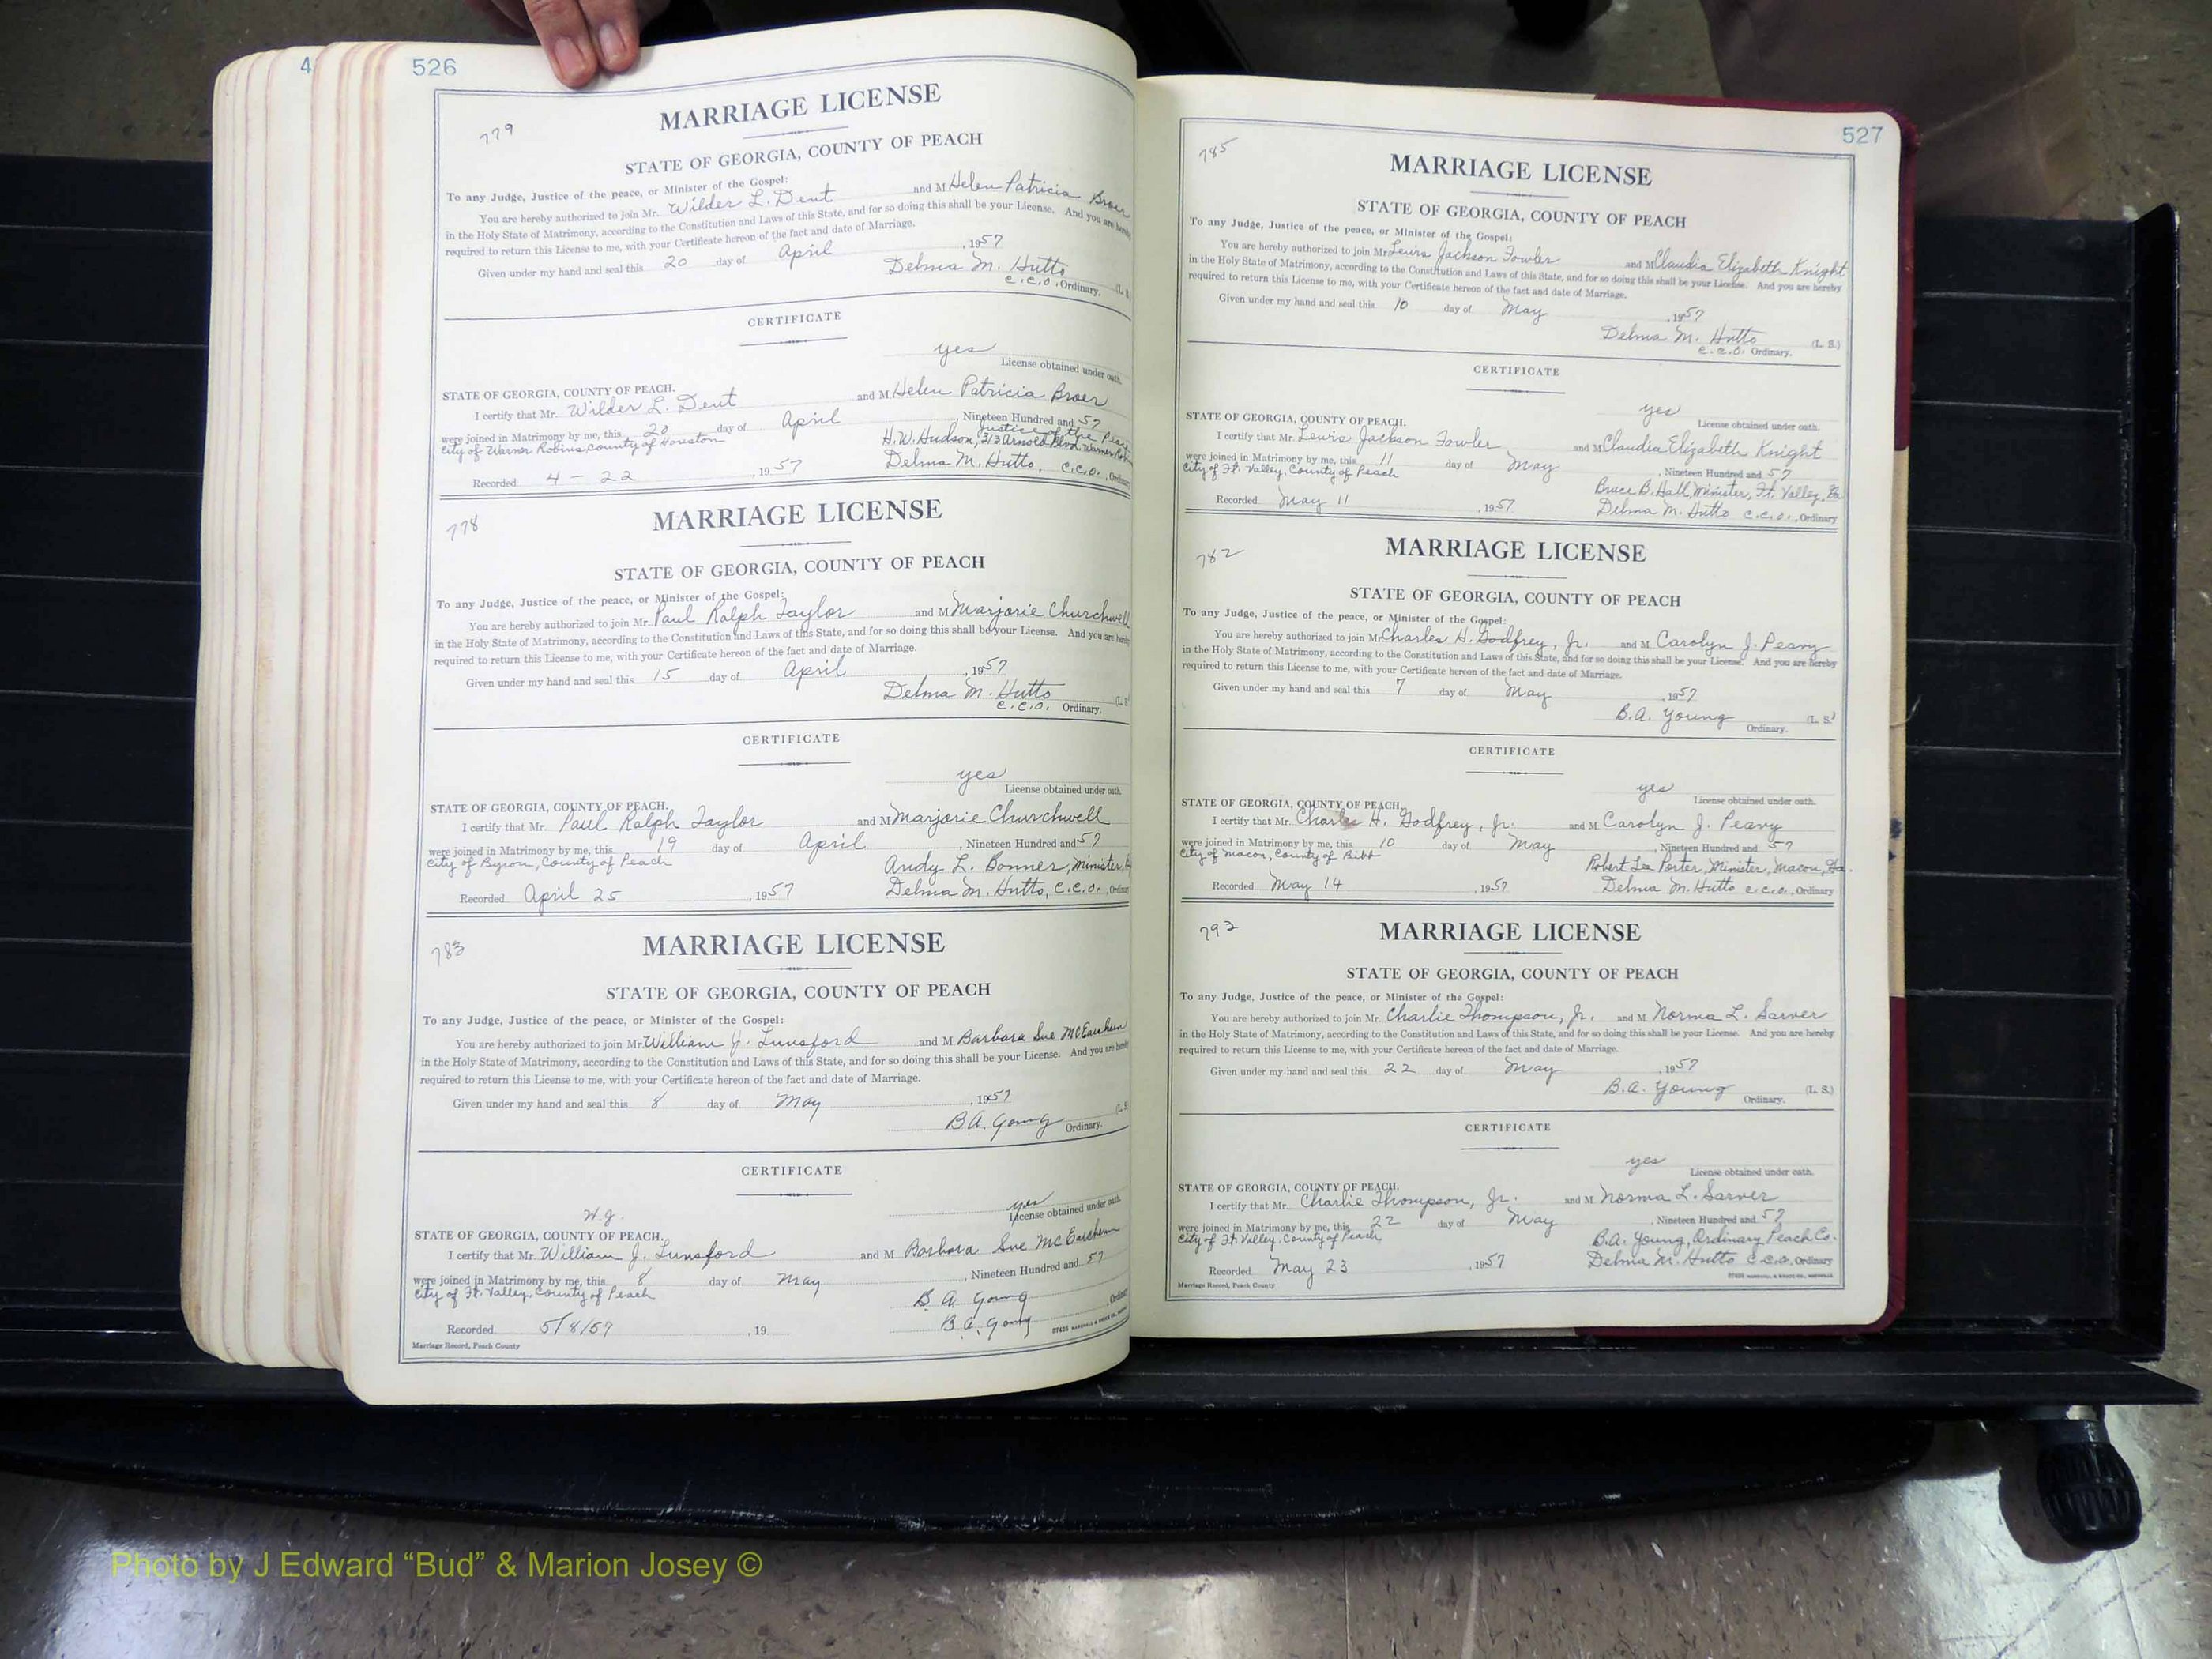 4
526
779
MARRIAGE LICENSE
STATE OF GEORGIA, COUNTY OF PEACH
To any Judge, Justice of the peace, or Minister of the Gospel:
You are hereby authorized to join Mr. Wilder L. Dent and M Helen Patricia Broer
in the Holy State of Matrimony, according to the Constitution and Laws of this State, and for so doing this shall be your License. And you are hereby
required to return this License to me, with your Certificate hereon of the fact and date of Marriage.
Given under my hand and seal this 20 day of April, 1957
Delma M. Hutto (L. S.
C.C.O. Ordinary.
CERTIFICATE
yes
License obtained under oath.
STATE OF GEORGIA, COUNTY OF PEACH.
I certify that Mr. Wilder L. Dent and M Helen Patricia Broer
were joined in Matrimony by me, this 20 day of April, Nineteen Hundred and 57
Justice of the Peace
City of Warner Robins, County of Houston H.W. Hudson, 313 Arnold Blvd, Warner Robins
Recorded 4 - 22, 1957 Delma M. Hutto, C.C.O., Ordinary
778
MARRIAGE LICENSE
STATE OF GEORGIA, COUNTY OF PEACH
To any Judge, Justice of the peace, or Minister of the Gospel:
You are hereby authorized to join Mr. Paul Ralph Taylor and M Marjorie Churchwell
in the Holy State of Matrimony, according to the Constitution and Laws of this State, and for so doing this shall be your License. And you are hereby
required to return this License to me, with your Certificate hereon of the fact and date of Marriage.
Given under my hand and seal this 15 day of April, 1957
Delma M. Hutto (L. S
C.C.O. Ordinary.
CERTIFICATE
yes
License obtained under oath.
STATE OF GEORGIA, COUNTY OF PEACH.
I certify that Mr. Paul Ralph Taylor and M Marjorie Churchwell
were joined in Matrimony by me, this 19 day of April, Nineteen Hundred and 57
City of Byron, County of Peach Andy L. Bonner, Minister,
Recorded April 25, 1957 Delma M. Hutto, C.C.O., Ordinary
783
MARRIAGE LICENSE
STATE OF GEORGIA, COUNTY OF PEACH
To any Judge, Justice of the peace, or Minister of the Gospel:
You are hereby authorized to join Mr. William J. Lunsford and M Barbara Sue McEachern
in the Holy State of Matrimony, according to the Constitution and Laws of this State, and for so doing this shall be your License. And you are hereby
required to return this License to me, with your Certificate hereon of the fact and date of Marriage.
Given under my hand and seal this 8 day of May, 1957
B.A. Young (L. S.
Ordinary.
CERTIFICATE
yes
License obtained under oath.
W.J.
STATE OF GEORGIA, COUNTY OF PEACH.
I certify that Mr. William J. Lunsford and M Barbara Sue McEachern
were joined in Matrimony by me, this 8 day of May, Nineteen Hundred and 57
City of Ft. Valley, County of Peach B. A. Young
Recorded 5/8/57, 19 B. A. Young, Ordinary
Marriage Record, Peach County
527
785
MARRIAGE LICENSE
STATE OF GEORGIA, COUNTY OF PEACH
To any Judge, Justice of the peace, or Minister of the Gospel:
You are hereby authorized to join Mr. Lewis Jackson Fowler and M Claudia Elizabeth Knight
in the Holy State of Matrimony, according to the Constitution and Laws of this State, and for so doing this shall be your License. And you are hereby
required to return this License to me, with your Certificate hereon of the fact and date of Marriage.
Given under my hand and seal this 10 day of May, 1957
Delma M. Hutto (L. S.)
C.C.O. Ordinary.
CERTIFICATE
yes
License obtained under oath.
STATE OF GEORGIA, COUNTY OF PEACH.
I certify that Mr. Lewis Jackson Fowler and M Claudia Elizabeth Knight
were joined in Matrimony by me, this 11 day of May, Nineteen Hundred and 57
City of Ft. Valley, County of Peach Bruce B. Hall, Minister, Ft. Valley, Ga
Recorded May 11, 1957 Delma M. Hutto C.C.O., Ordinary
782
MARRIAGE LICENSE
STATE OF GEORGIA, COUNTY OF PEACH
To any Judge, Justice of the peace, or Minister of the Gospel:
You are hereby authorized to join Mr. Charles H. Godfrey, Jr. and M Carolyn J. Peavy
in the Holy State of Matrimony, according to the Constitution and Laws of this State, and for so doing this shall be your License. And you are hereby
required to return this License to me, with your Certificate hereon of the fact and date of Marriage.
Given under my hand and seal this 7 day of May, 1957
B.A. Young (L. S.)
Ordinary.
CERTIFICATE
yes
License obtained under oath.
STATE OF GEORGIA, COUNTY OF PEACH.
I certify that Mr. Charles H. Godfrey, Jr. and M Carolyn J. Peavy
were joined in Matrimony by me, this 10 day of May, Nineteen Hundred and 57
City of Macon, County of Bibb Robert Lee Porter, Minister, Macon, Ga.
Recorded May 14, 1957 Delma M. Hutto C.C.O., Ordinary
793
MARRIAGE LICENSE
STATE OF GEORGIA, COUNTY OF PEACH
To any Judge, Justice of the peace, or Minister of the Gospel:
You are hereby authorized to join Mr. Charlie Thompson, Jr. and M Norma L. Sarver
in the Holy State of Matrimony, according to the Constitution and Laws of this State, and for so doing this shall be your License. And you are hereby
required to return this License to me, with your Certificate hereon of the fact and date of Marriage.
Given under my hand and seal this 22 day of May, 1957
B.A. Young (L. S.)
Ordinary.
CERTIFICATE
yes
License obtained under oath.
STATE OF GEORGIA, COUNTY OF PEACH.
I certify that Mr. Charlie Thompson, Jr. and M Norma L. Sarver
were joined in Matrimony by me, this 22 day of May, Nineteen Hundred and 57
City of Ft. Valley, County of Peach B.A. Young, Ordinary Peach Co.
Recorded May 23, 1957 Delma M. Hutto C.C.O. Ordinary
Marriage Record, Peach County
Photo by J Edward “Bud” & Marion Josey ©